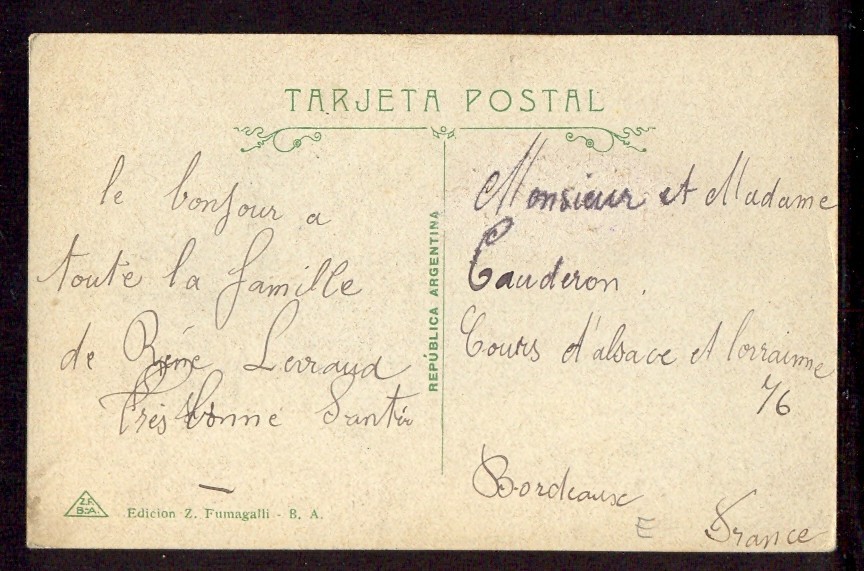 TARJETA POSTAL
le bonjour a
toute la famille
de Réné Lerraud
très bonne Santée
REPÚBLICA ARGENTINA
Monsieur et Madame
Cauderon.
Cours d'alsace et lorrainne
76
Bordeaux
France
E
Z.F.
B.-A.
Edicion Z. Fumagalli - B. A.